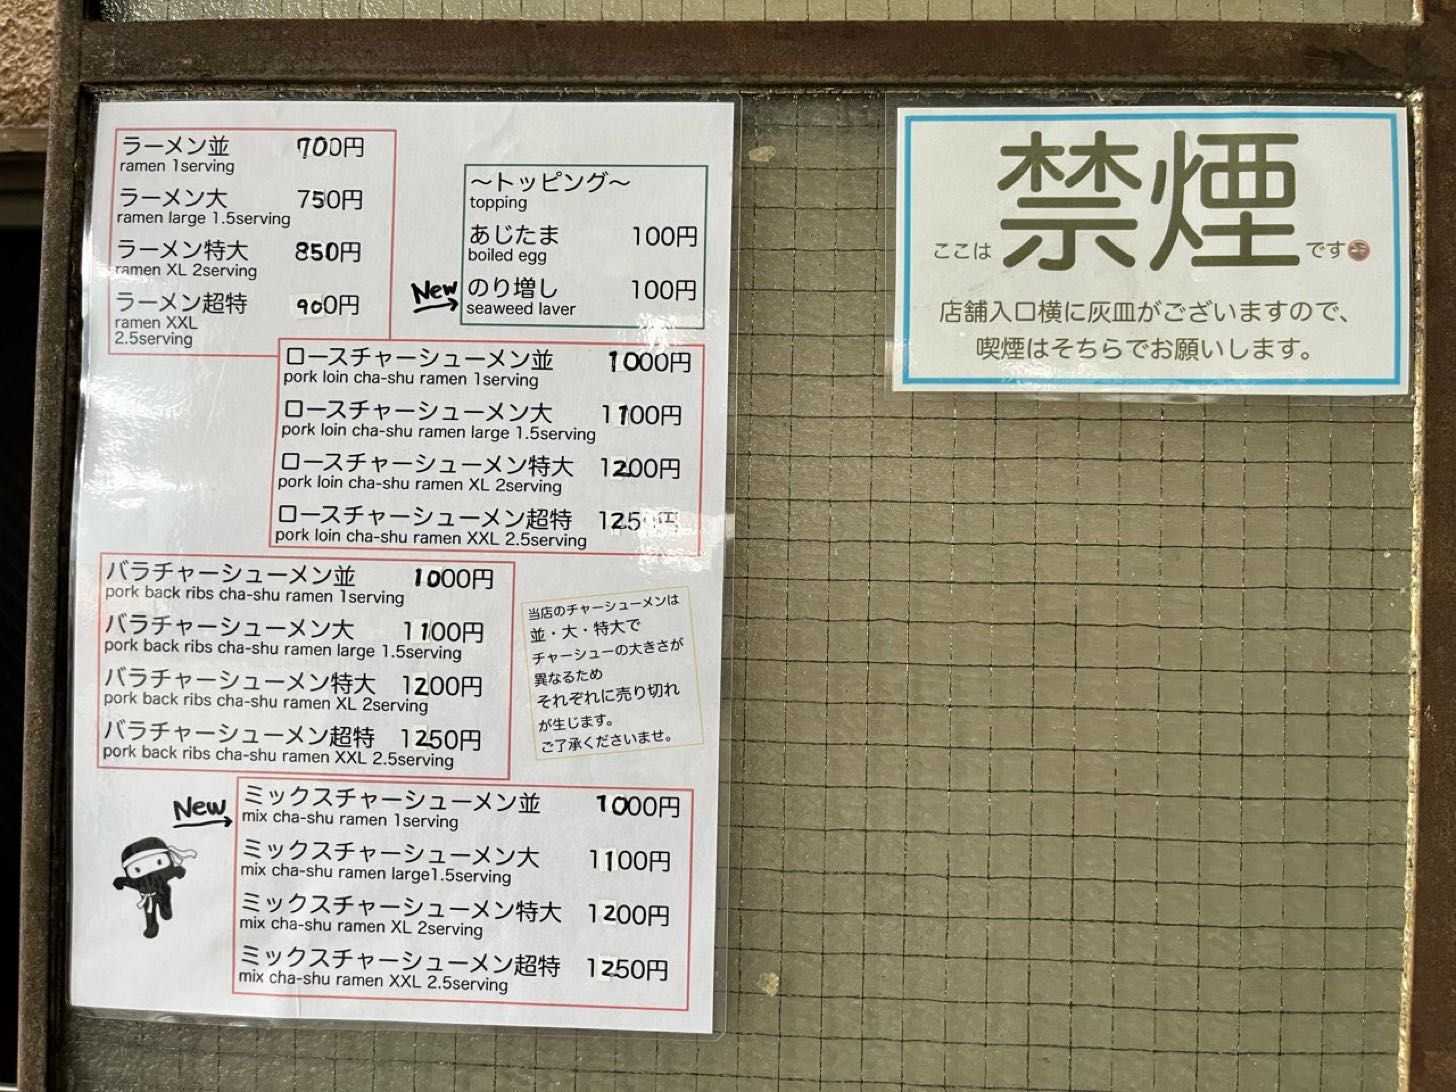 ラーメン並 700円
ramen 1serving
ラーメン大 750円
ramen large 1.5serving
ラーメン特大 850円
ramen XL 2serving
ラーメン超特 900円
ramen XXL
2.5serving
～トッピング～
topping
あじたま 100円
boiled egg
New のり増し 100円
seaweed laver
ロースチャーシューメン並 1000円
pork loin cha-shu ramen 1serving
ロースチャーシューメン大 1100円
pork loin cha-shu ramen large 1.5serving
ロースチャーシューメン特大 1200円
pork loin cha-shu ramen XL 2serving
ロースチャーシューメン超特 1250円
pork loin cha-shu ramen XXL 2.5serving
バラチャーシューメン並 1000円
pork back ribs cha-shu ramen 1serving
バラチャーシューメン大 1100円
pork back ribs cha-shu ramen large 1.5serving
バラチャーシューメン特大 1200円
pork back ribs cha-shu ramen XL 2serving
バラチャーシューメン超特 1250円
pork back ribs cha-shu ramen XXL 2.5serving
当店のチャーシューメンは
並・大・特大で
チャーシューの大きさが
異なるため
それぞれに売り切れ
が生じます。
ご了承くださいませ。
New ミックスチャーシューメン並 1000円
mix cha-shu ramen 1serving
ミックスチャーシューメン大 1100円
mix cha-shu ramen large1.5serving
ミックスチャーシューメン特大 1200円
mix cha-shu ramen XL 2serving
ミックスチャーシューメン超特 1250円
mix cha-shu ramen XXL 2.5serving
ここは禁煙です
店舗入口横に灰皿がございますので、
喫煙はそちらでお願いします。